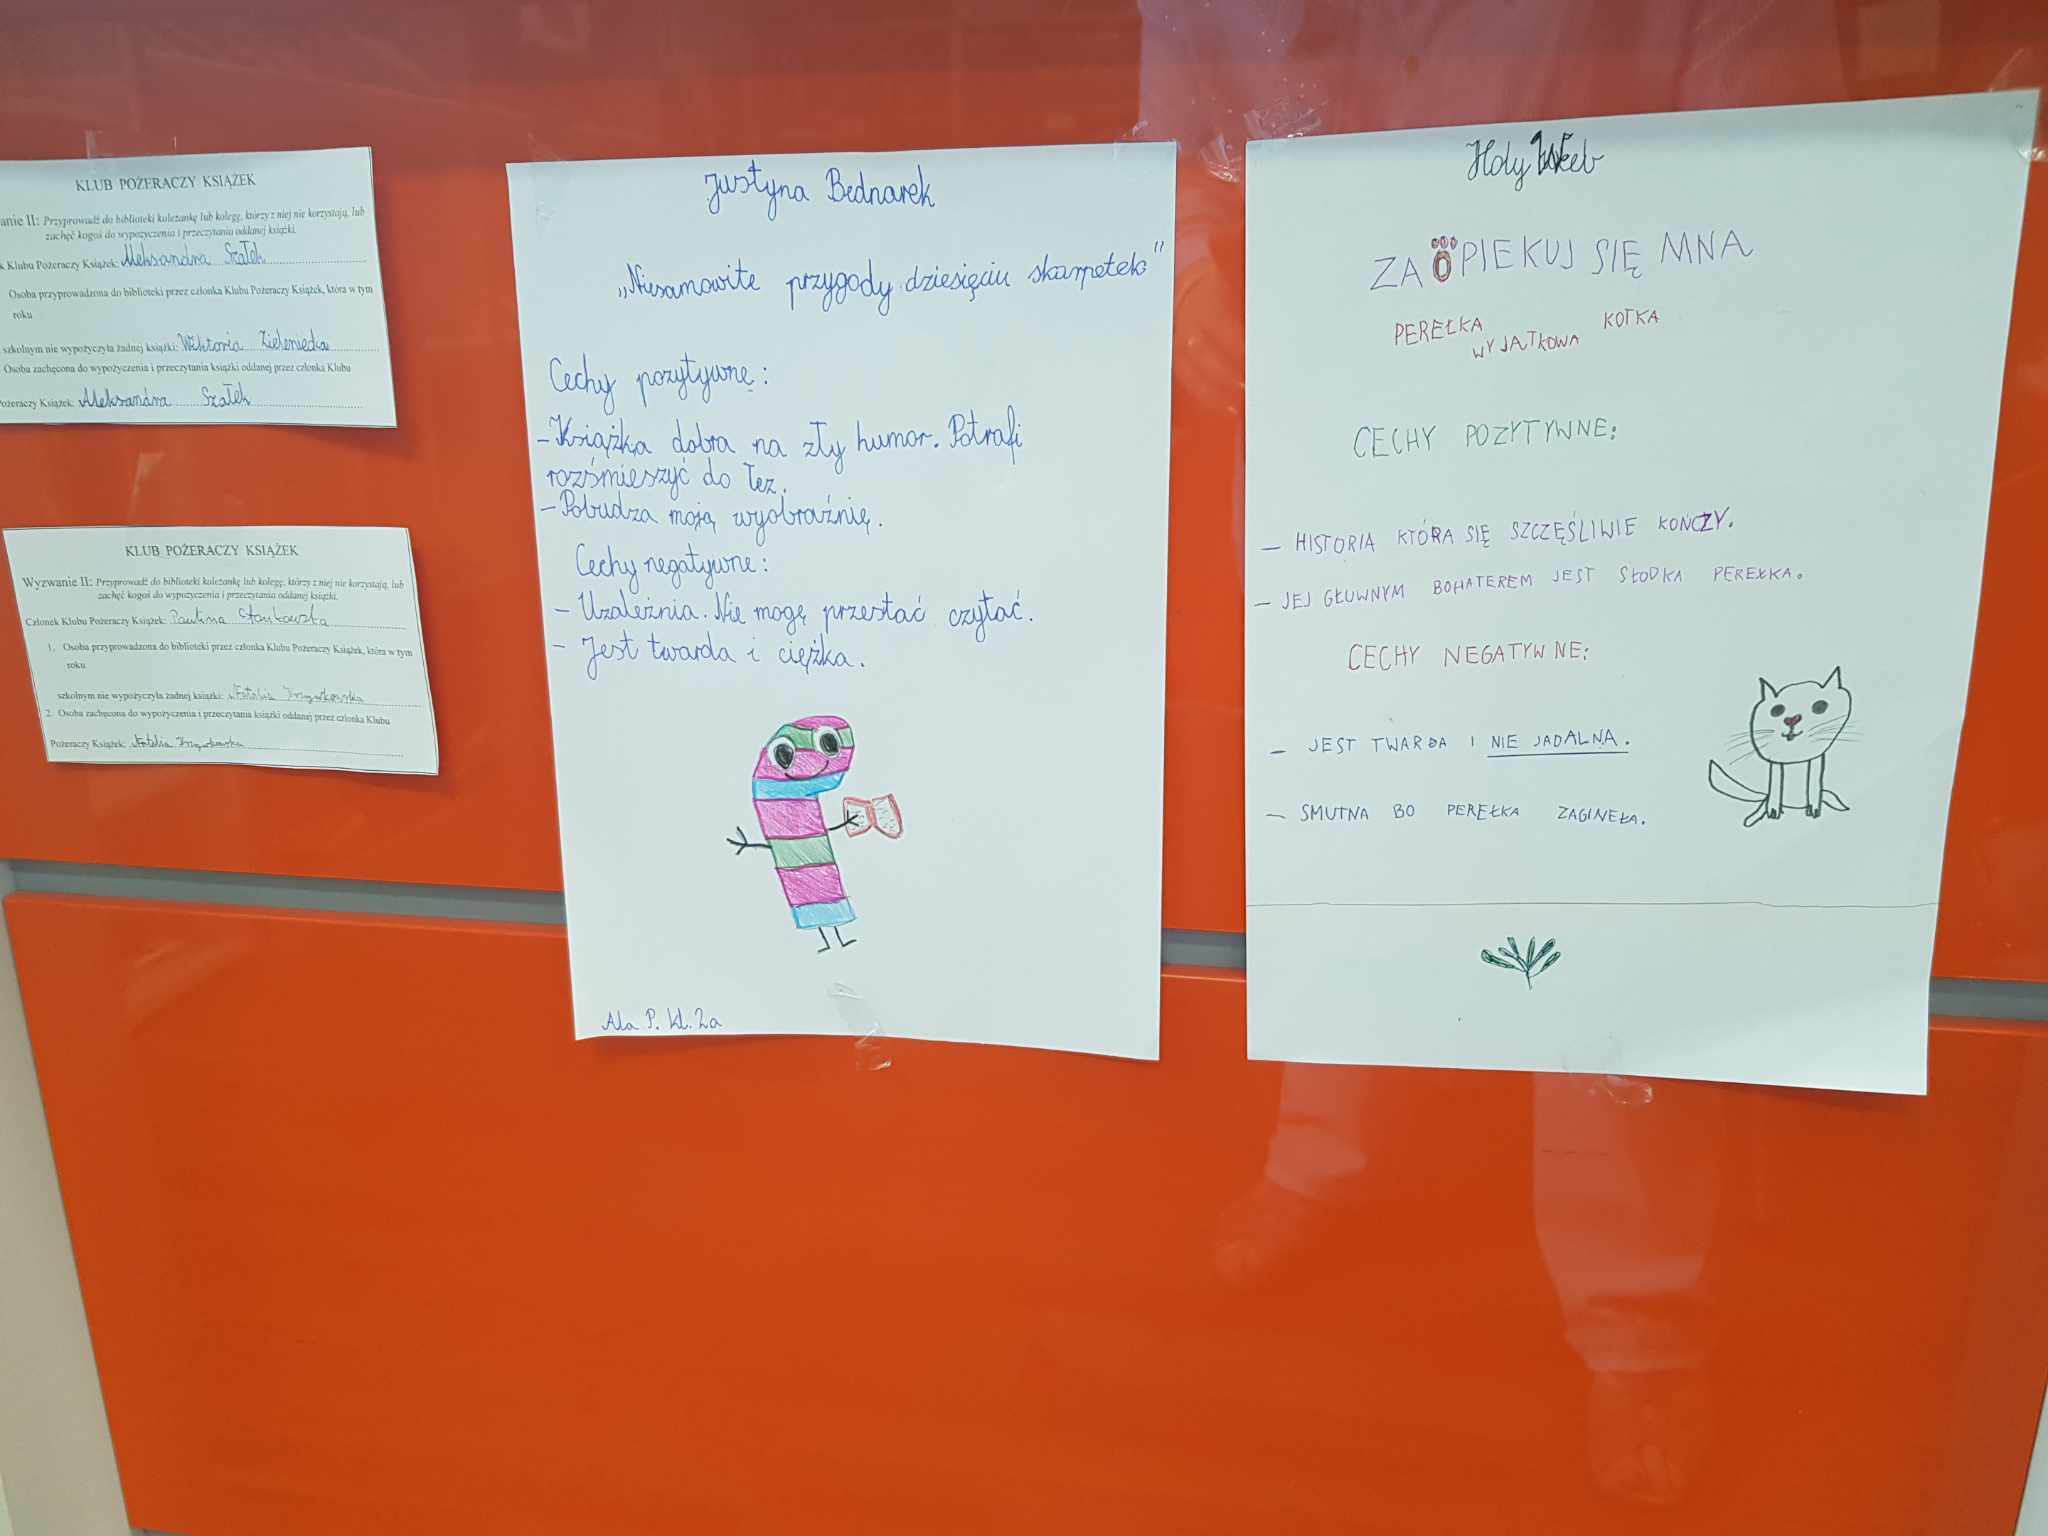 KLUB POŻERACZY KSIĄŻEK
anie II: Przyprowadź do biblioteki koleżankę lub kolegę, którzy z niej nie korzystają, lub
zachęć kogoś do wypożyczenia i przeczytania oddanej książki.
k Klubu Pożeraczy Książek: Aleksandra Szałek
Osoba przyprowadzona do biblioteki przez członka Klubu Pożeraczy Książek, która w tym
roku
szkolnym nie wypożyczyła żadnej książki: Wiktoria Zieleniecka
Osoba zachęcona do wypożyczenia i przeczytania książki oddanej przez członka Klubu
Pożeraczy Książek: Aleksandra Szałek
KLUB POŻERACZY KSIĄŻEK
Wyzwanie II: Przyprowadź do biblioteki koleżankę lub kolegę, którzy z niej nie korzystają, lub
zachęć kogoś do wypożyczenia i przeczytania oddanej książki.
Członek Klubu Pożeraczy Książek: Paulina Stankowska
1. Osoba przyprowadzona do biblioteki przez członka Klubu Pożeraczy Książek, która w tym
roku
szkolnym nie wypożyczyła żadnej książki: Natalia
2. Osoba zachęcona do wypożyczenia i przeczytania książki oddanej przez członka Klubu
Pożeraczy Książek: Natalia
Justyna Bednarek
„Niesamowite przygody dziesięciu skarpetek"
Cechy pozytywnę:
- Książka dobra na zły humor. Potrafi
rozśmieszyć do łez.
- Pobudza moją wyobraźnię.
Cechy negatywne:
- Uzależnia. Nie mogę przestać czytać.
- Jest twarda i ciężka.
Ala P. kl. 2a
Holy Web
ZAOPIEKUJ SIĘ MNA
PEREŁKA WYJĄTKOWA KOTKA
CECHY POZYTYWNE:
- HISTORIA KTÓRA SIĘ SZCZĘŚLIWIE KOŃCZY.
- JEJ GŁUWNYM BOHATEREM JEST SŁODKA PEREŁKA.
CECHY NEGATYWNE:
- JEST TWARDA I NIE JADALNA.
- SMUTNA BO PEREŁKA ZAGINEŁA.